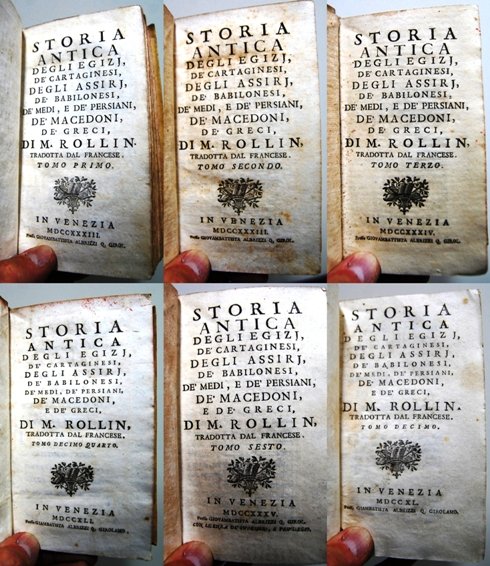 STORIA
ANTICA
DEGLI EGIZJ,
DE' CARTAGINESI,
DEGLI ASSIRJ,
DE' BABILONESI,
DE' MEDI, E DE' PERSIANI,
DE' MACEDONI,
DE' GRECI,
DI M. ROLLIN,
TRADOTTA DAL FRANCESE.
TOMO PRIMO.
IN VENEZIA
MDCCXXXIII.
Presso GIOVAMBATTISTA ALBRIZZI Q. GIROL.
STORIA
ANTICA
DEGLI EGIZJ,
DE' CARTAGINESI,
DEGLI ASSIRJ,
DE' BABILONESI,
DE' MEDI, E DE' PERSIANI,
DE' MACEDONI,
DE' GRECI,
DI M. ROLLIN,
TRADOTTA DAL FRANCESE.
TOMO SECONDO.
IN VENEZIA
MDCCXXXIII.
Presso GIOVAMBATTISTA ALBRIZZI Q. GIROL.
STORIA
ANTICA
DEGLI EGIZJ,
DE' CARTAGINESI,
DEGLI ASSIRJ,
DE' BABILONESI,
DE' MEDI, E DE' PERSIANI,
DE' MACEDONI,
DE' GRECI,
DI M. ROLLIN,
TRADOTTA DAL FRANCESE.
TOMO TERZO.
IN VENEZIA
MDCCXXXIV.
Presso GIOVAMBATTISTA ALBRIZZI Q. GIROL.
STORIA
ANTICA
DEGLI EGIZJ,
DE' CARTAGINESI,
DEGLI ASSIRJ,
DE' BABILONESI,
DE' MEDI, DE' PERSIANI,
DE' MACEDONI,
E DE' GRECI,
DI M. ROLLIN,
TRADOTTA DAL FRANCESE.
TOMO DECIMO QUARTO.
IN VENEZIA
MDCCXLI.
Presso GIAMBATISTA ALBRIZZI Q. GIROLAMO.
STORIA
ANTICA
DEGLI EGIZJ,
DE' CARTAGINESI,
DEGLI ASSIRJ,
DE' BABILONESI,
DE' MEDI, E DE' PERSIANI,
DE' MACEDONI,
E DE' GRECI,
DI M. ROLLIN,
TRADOTTA DAL FRANCESE.
TOMO SESTO.
IN VENEZIA
MDCCXXXV.
Presso GIOVAMBATTISTA ALBRIZZI Q. GIROL.
CON LICENZA DE' SUPERIORI, E PRIVILEGIO.
STORIA
ANTICA
DEGLI EGIZJ,
DE' CARTAGINESI,
DEGLI ASSIRJ,
DE' BABILONESI,
DE' MEDI, DE' PERSIANI,
DE' MACEDONI,
E DE' GRECI,
DI M. ROLLIN.
TRADOTTA DAL FRANCESE.
TOMO DECIMO.
IN VENEZIA
MDCCXL.
Presso GIAMBATISTA ALBRIZZI Q. GIROLAMO.